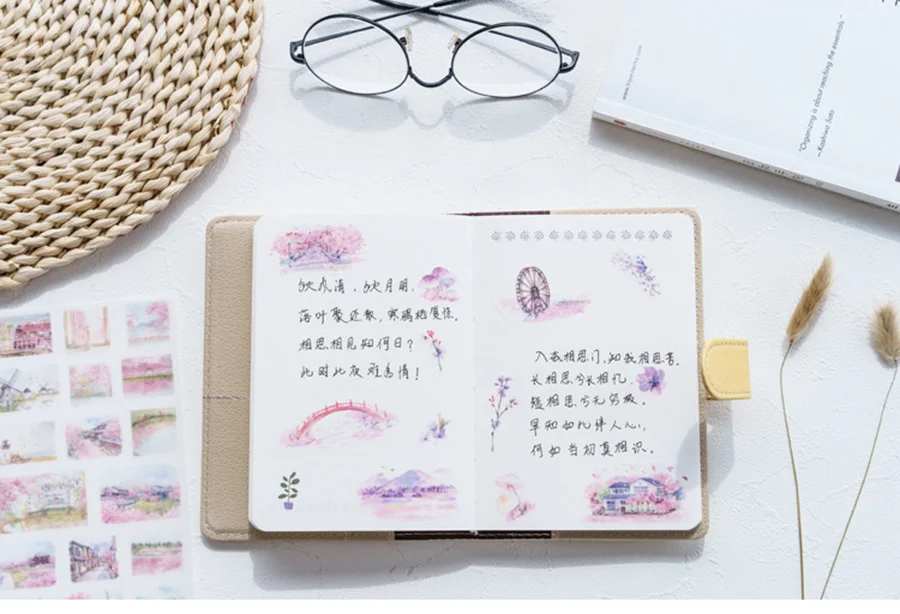 秋风清，秋月明，
落叶聚还散，寒鸦栖复惊。
相思相见知何日？
此时此夜难为情！
入我相思门，知我相思苦。
长相思兮长相忆，
短相思兮无穷极。
早知如此绊人心，
何如当初莫相识。
"Organizing is about reaching the essentials."
—Kashiwa Sato